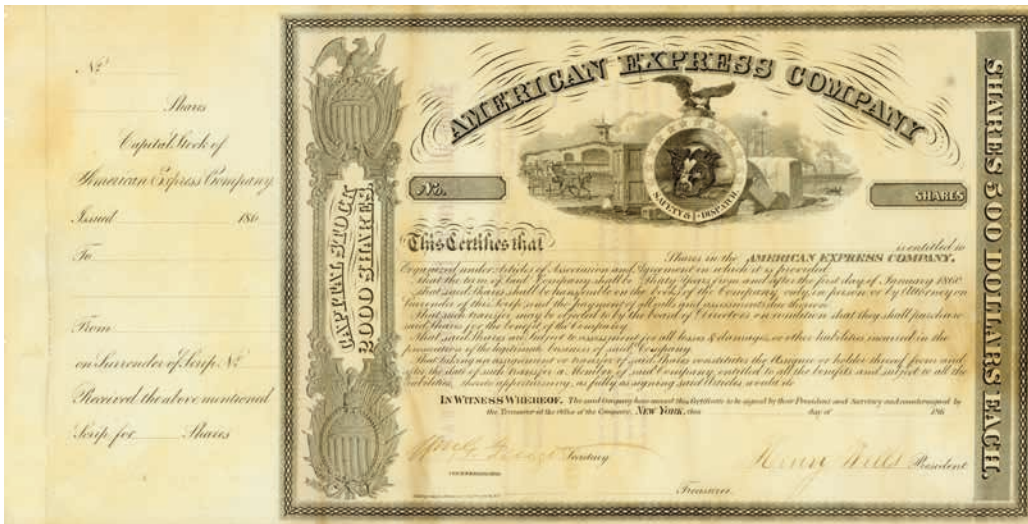 No.
Shares
Capital Stock of
American Express Company
Issued 186
To
From
on Surrender of Scrip No.
Received the above mentioned
Scrip for Shares
CAPITAL STOCK
2000 SHARES.
AMERICAN EXPRESS COMPANY
SAFETY & DISPATCH.
No.
SHARES
This Certifies that is entitled to
Shares in the AMERICAN EXPRESS COMPANY.
Organized under Articles of Association and Agreement in which it is provided
That the term of said Company shall be Thirty Years from and after the first day of January 1860
That said Shares shall be transferable in the books of the Company, only in person or by Attorney on
Surrender of this Scrip and the payment of all calls and assessments due thereon.
That such transfer may be objected to by the board of Directors on condition that they shall purchase
said Shares for the benefit of the Company.
That said Shares are subject to assessment for all losses & damages, or other liabilities incurred in the
prosecution of the legitimate business of said Company.
That taking an assignment or transfer of said Shares constitutes the Assignee or holder thereof from and
after the date of such transfer a Member of said Company, entitled to all the benefits and subject to all the
liabilities, thereto appertaining, as fully as signing said Articles would do
IN WITNESS WHEREOF, The said Company have caused this Certificate to be signed by their President and Secretary and countersigned by
the Treasurer at the office of the Company, NEW YORK, this day of 186
Secretary
Henry Wells President
Treasurer.
SHARES 500 DOLLARS EACH.